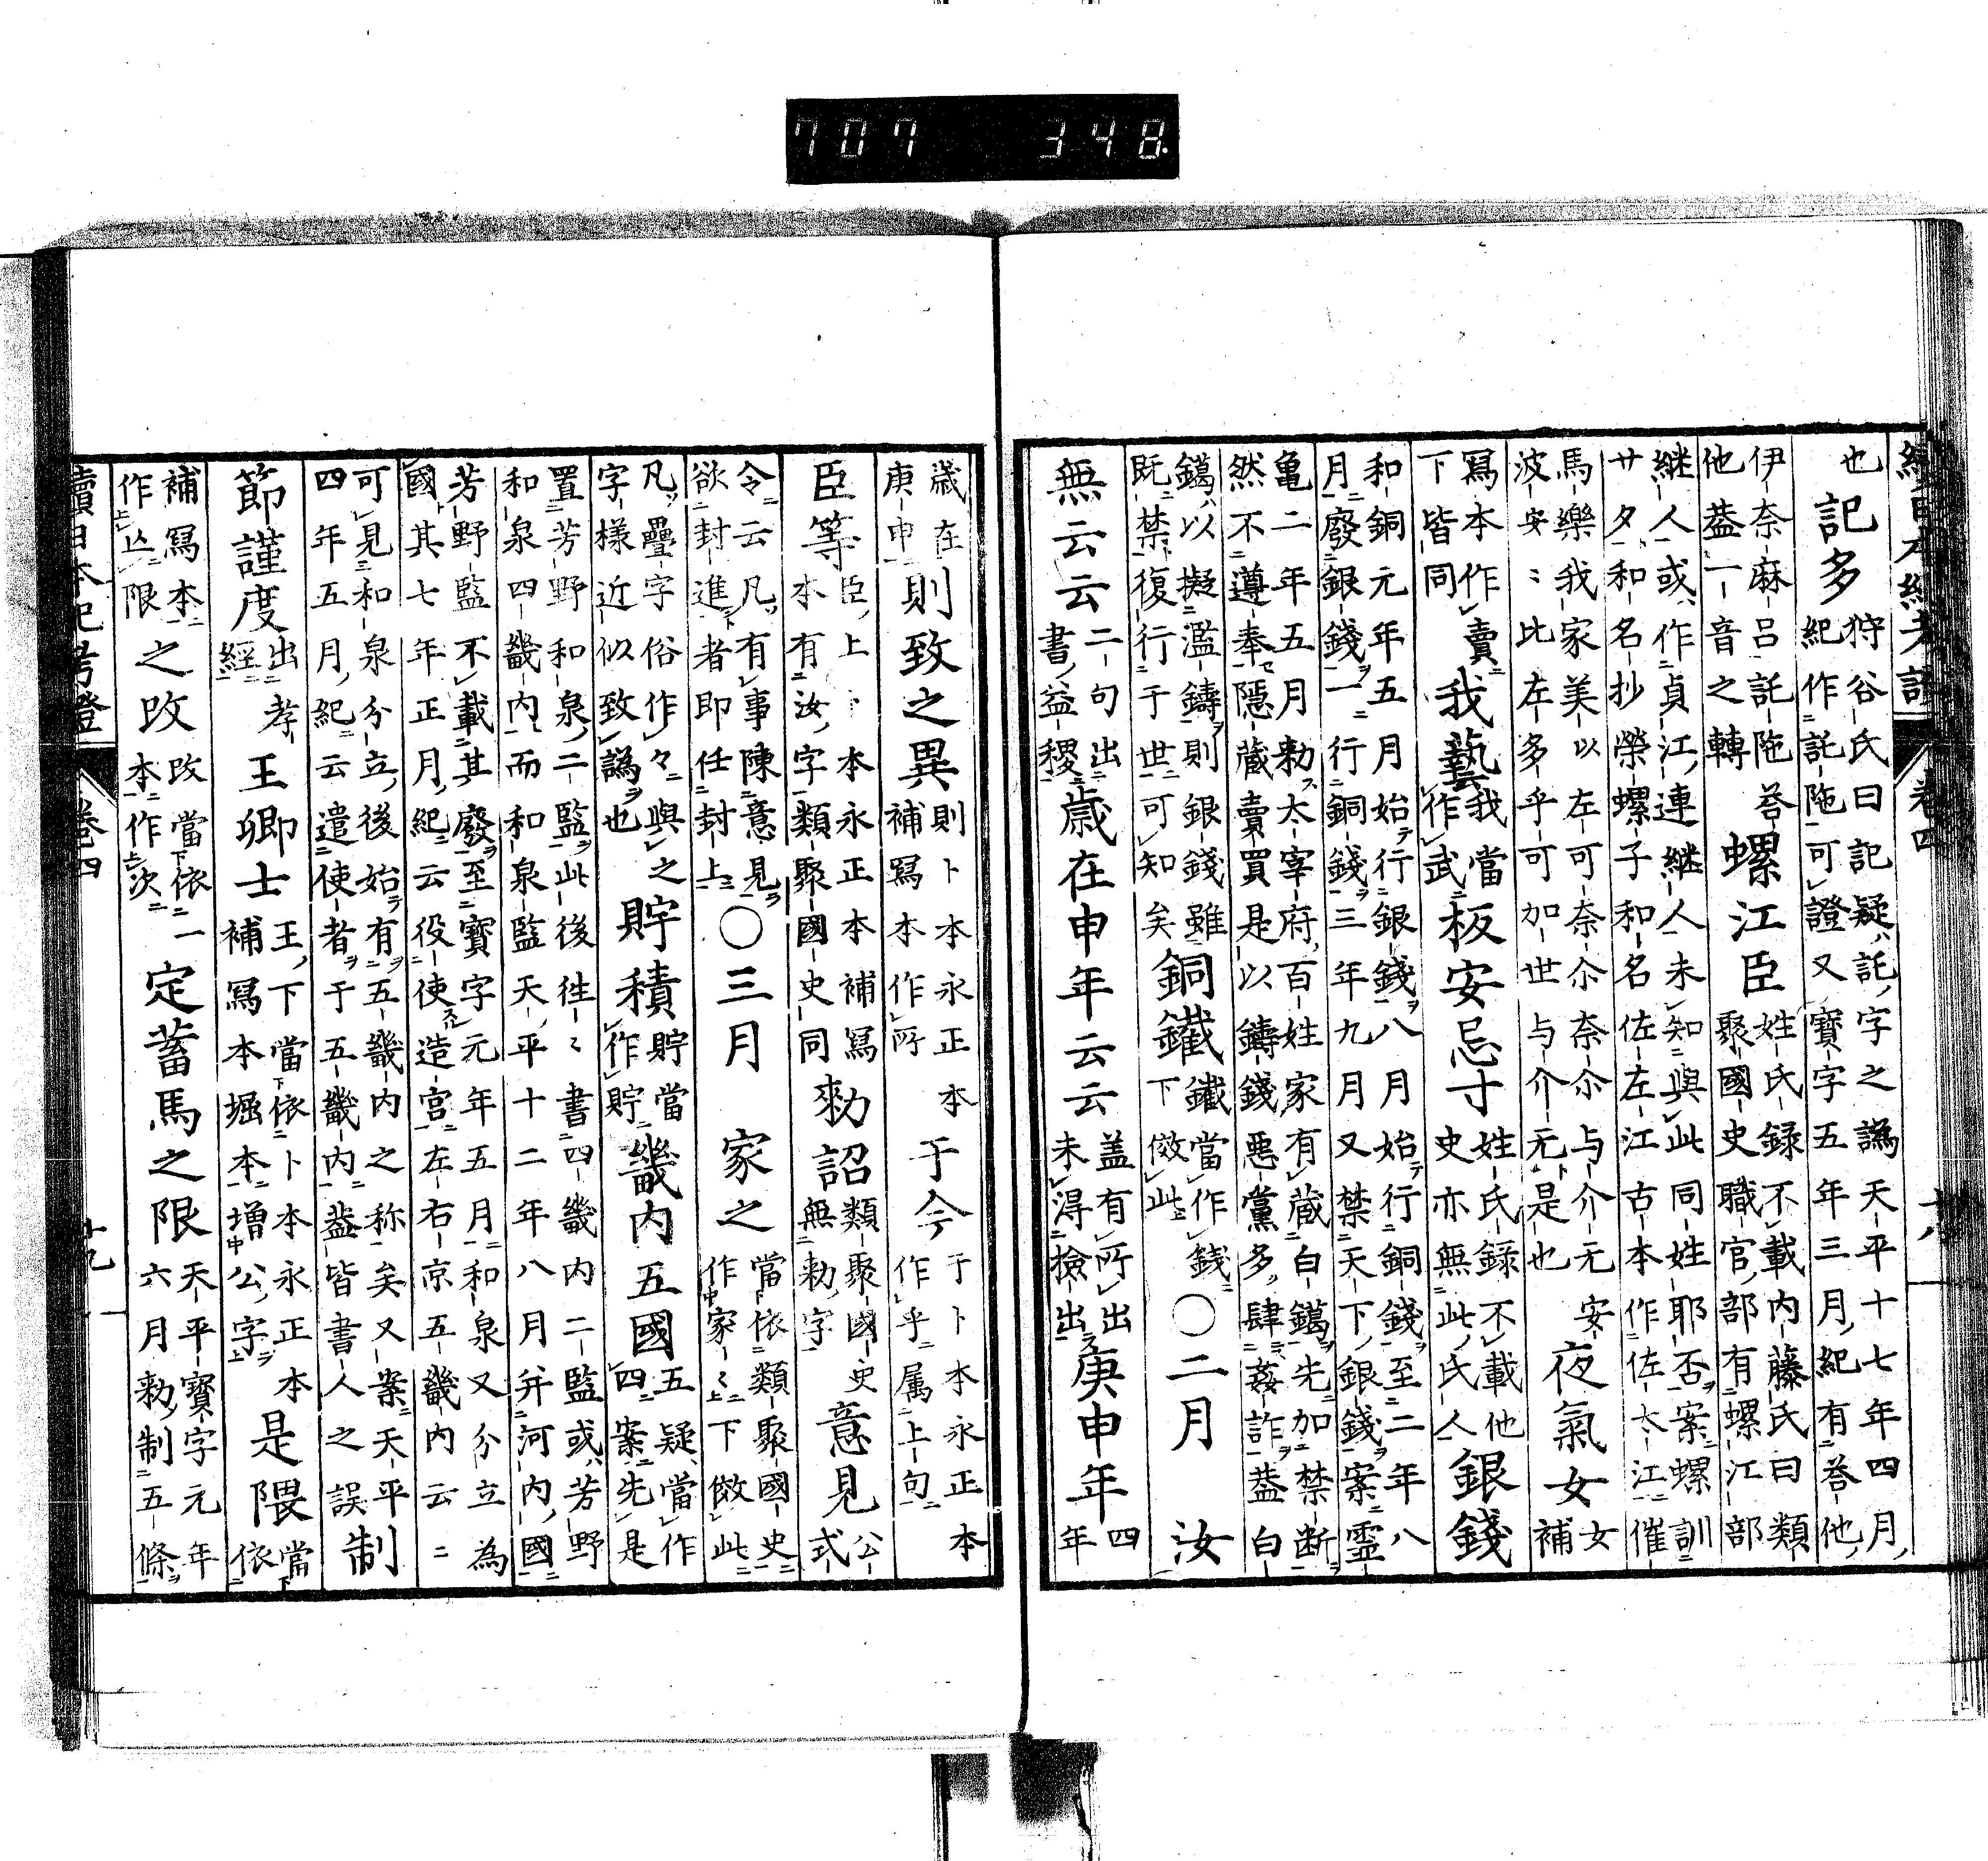 707 348
續日本紀考證 卷四 十八
也記多狩谷氏曰記疑託字之譌天平十七年四月紀作託陁可證又寶字五年三月紀有荅他
伊奈麻呂託陁荅他葢一音之轉螺江臣姓氏録不載内藤氏曰類聚國史職官部有螺江部
継人或作貞江連継人未知與此同姓耶否案螺訓サタ和名抄榮螺子和名佐左江古本作佐太江催
馬樂我家美以左可奈尒奈尒与介无安波安〻比左多乎可加世与介无是也夜氣女女補
寫本作賣下皆同我藝我當作武板安忌寸姓氏録不載他史亦無此氏人銀錢
和銅元年五月始行銀錢八月始行銅錢至二年八月廢銀錢一行銅錢三年九月又禁天下銀錢案霊
亀二年五月勅太宰府百姓家有蔵白鑞先加禁断然不遵奉隠蔵賣買是以鑄錢惡黨多肆姦詐葢白
鑞以擬濫鑄則銀錢雖既禁復行于世可知矣銅鑯鑯當作錢下傚此〇二月 汝
無云云二句出書益稷歳在申年云云盖有所出未得撿出庚申年四年
歳在庚申則致之異則卜本永正本補寫本作所于今于卜本永正本作乎属上句
臣等臣上卜本永正本補寫本有汝字類聚國史同勅詔類聚國史無勅字意見公式
令云凡有事陳意見欲封進者即任封上〇三月 家之當依類聚國史作家〻下傚此
凡疊字俗作々與之字様近似致譌也貯積貯當作貯畿内五國五疑當作四案先是
置芳野和泉二監此後徃〻書四畿内二監或芳野和泉四畿内而和泉監天平十二年八月并河内國
芳野監不載其廢至寶字元年五月和泉又分立為國其七年正月紀云役使造宮左右京五畿内云〻
可見和泉分立後始有五畿内之称矣又案天平四年五月紀云遣使者于五畿内葢皆書人之誤制
節謹度出孝經王卿士王下當依卜本永正本補寫本堀本増公字是隈當依
補寫本作限之攺攺當依一本作次定蓄馬之限天平寶字元年六月勅制五條
續日本紀考證 卷四 十九